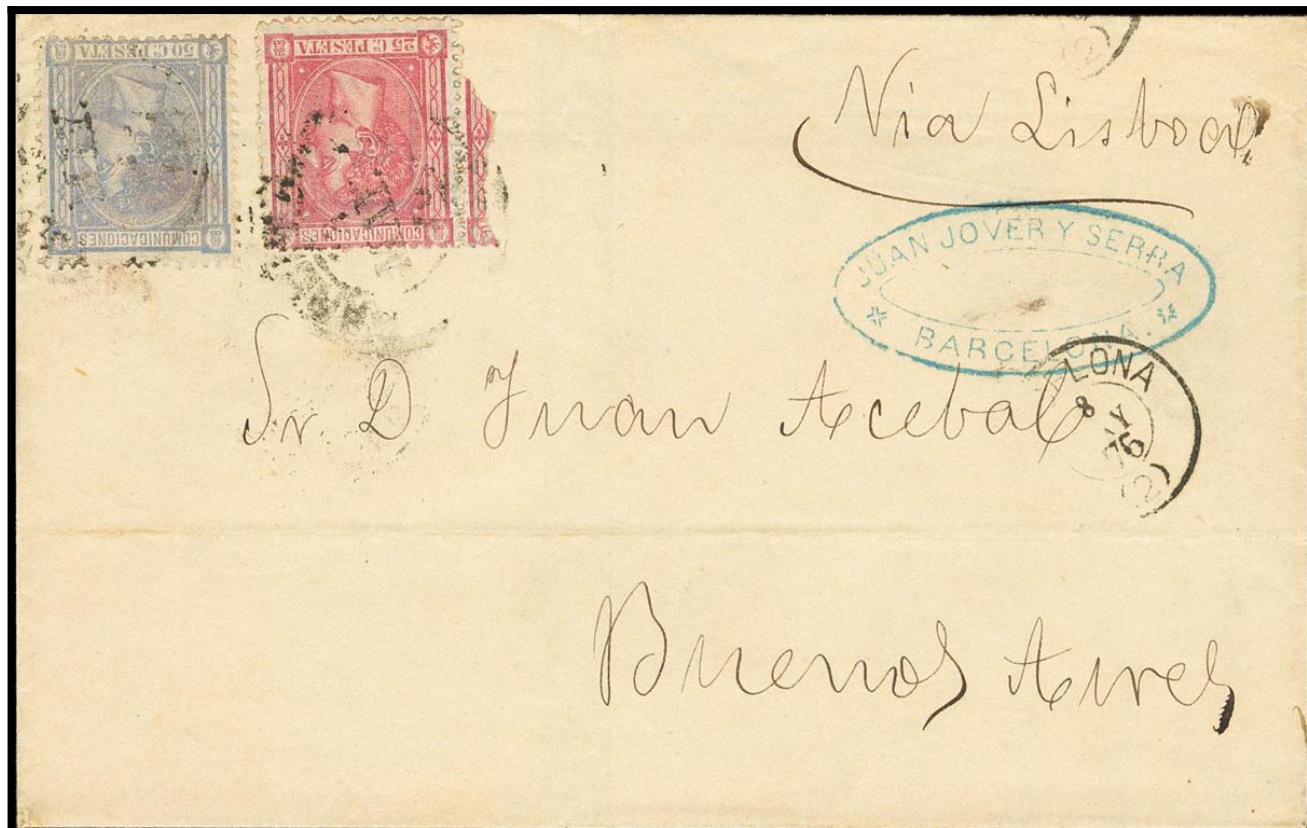 50 C. PESETA
COMUNICACIONES
25 C. PESETA
COMUNICACIONES
Via Lisboa
JUAN JOVER Y SERRA
BARCELONA.
LONA
8
75
(2)
Sr. D Juan Acebal
Buenos Aires